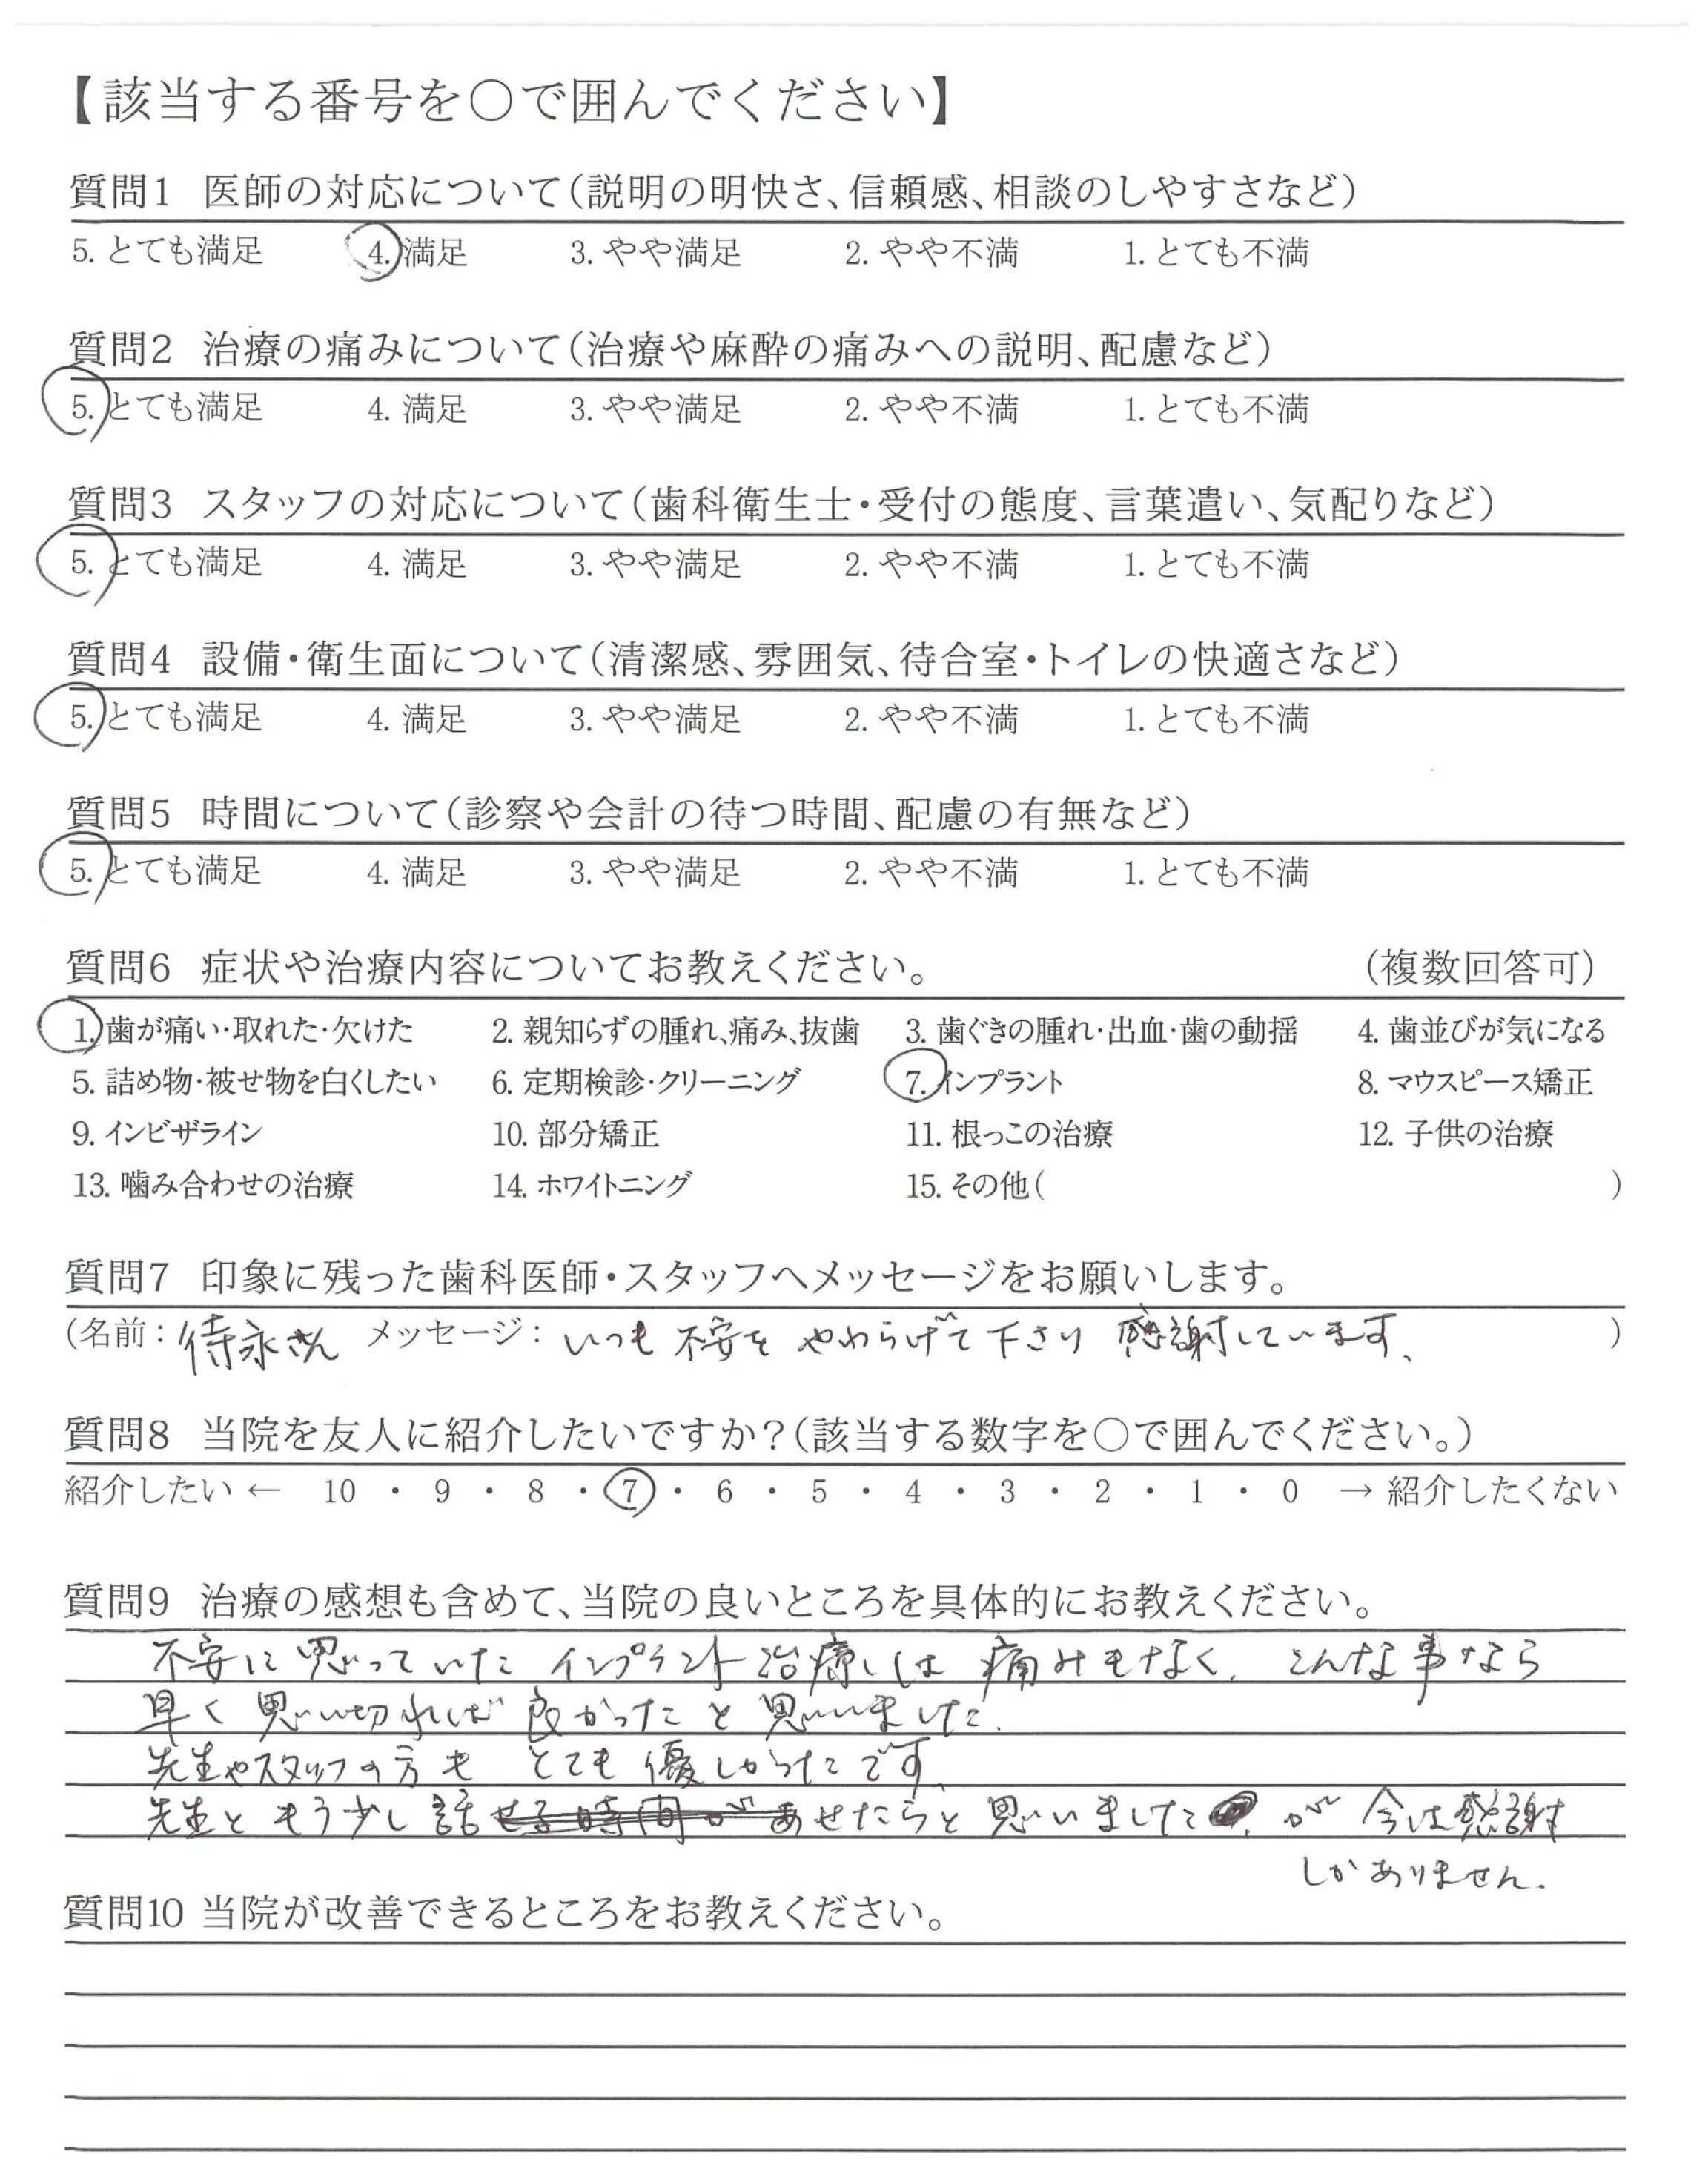 【該当する番号を○で囲んでください】
質問1 医師の対応について(説明の明快さ、信頼感、相談のしやすさなど)
5. とても満足 4. 満足 3. やや満足 2. やや不満 1. とても不満
質問2 治療の痛みについて(治療や麻酔の痛みへの説明、配慮など)
5. とても満足 4. 満足 3. やや満足 2. やや不満 1. とても不満
質問3 スタッフの対応について(歯科衛生士・受付の態度、言葉遣い、気配りなど)
5. とても満足 4. 満足 3. やや満足 2. やや不満 1. とても不満
質問4 設備・衛生面について(清潔感、雰囲気、待合室・トイレの快適さなど)
5. とても満足 4. 満足 3. やや満足 2. やや不満 1. とても不満
質問5 時間について(診察や会計の待つ時間、配慮の有無など)
5. とても満足 4. 満足 3. やや満足 2. やや不満 1. とても不満
質問6 症状や治療内容についてお教えください。 (複数回答可)
1. 歯が痛い・取れた・欠けた 2. 親知らずの腫れ、痛み、抜歯 3. 歯ぐきの腫れ・出血・歯の動揺 4. 歯並びが気になる
5. 詰め物・被せ物を白くしたい 6. 定期検診・クリーニング 7. インプラント 8. マウスピース矯正
9. インビザライン 10. 部分矯正 11. 根っこの治療 12. 子供の治療
13. 噛み合わせの治療 14. ホワイトニング 15. その他( )
質問7 印象に残った歯科医師・スタッフへメッセージをお願いします。
(名前: 待永さん メッセージ: いつも不安をやわらげて下さり感謝しています、 )
質問8 当院を友人に紹介したいですか?(該当する数字を○で囲んでください。)
紹介したい ← 10 ・ 9 ・ 8 ・ 7 ・ 6 ・ 5 ・ 4 ・ 3 ・ 2 ・ 1 ・ 0 → 紹介したくない
質問9 治療の感想も含めて、当院の良いところを具体的にお教えください。
不安に思っていたインプラント治療は痛みもなく、こんな事なら
早く思い切れば良かったと思いました。
先生やスタッフの方もとても優しかったです。
先生ともう少し話せる時間があせたらと思いましたが今は感謝
しかありません.
質問10 当院が改善できるところをお教えください。